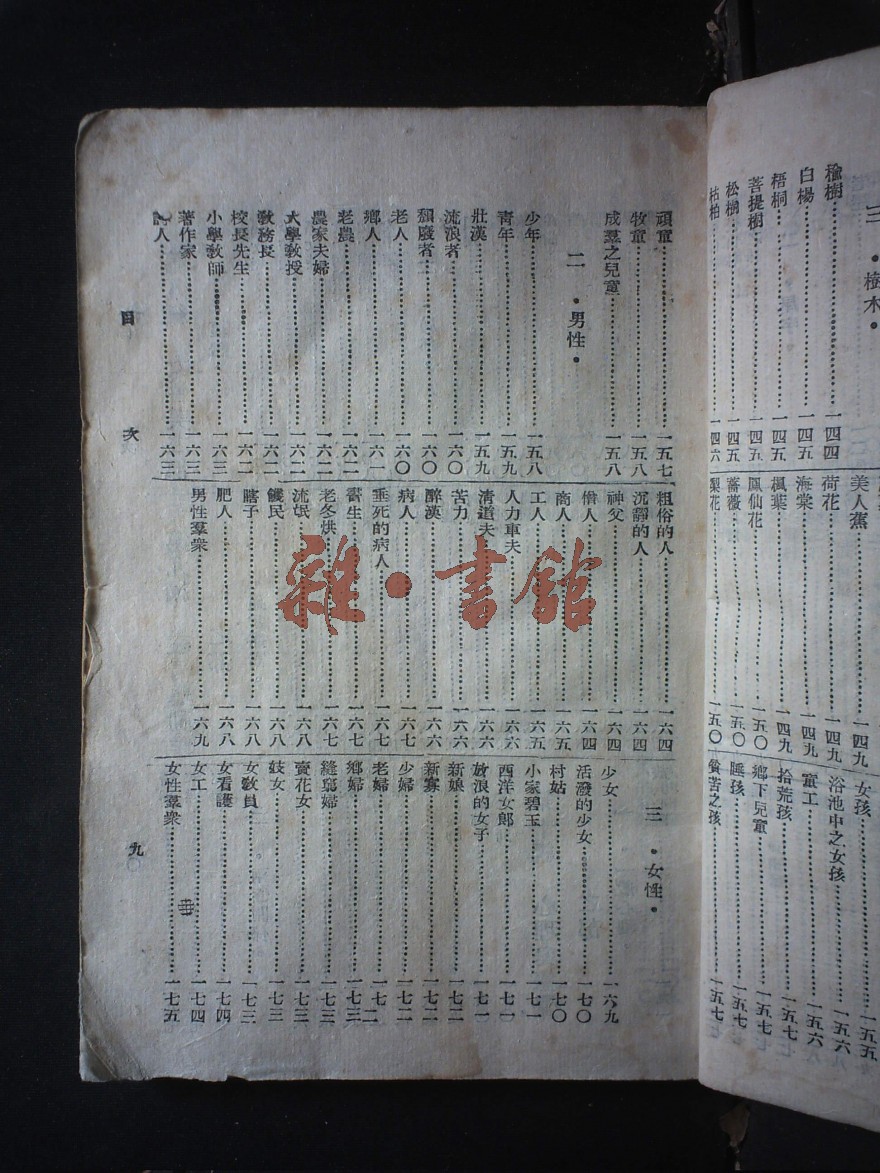 三·樹木·
楡樹…一四四
白楊…一四五
梧桐…一四五
菩提樹…一四五
松樹…一四五
枯柏…一四六
美人蕉…一四九
荷花…一四九
海棠…一四九
楓葉…一四九
鳳仙花…一五〇
薔薇…一五〇
梨花…一五〇
女孩…一五五
浴池中之女孩…一五六
童工…一五六
拾荒孩…一五七
鄉下兒童…一五七
睡孩…一五七
貧苦之孩…一五七
頑童…一五七
牧童…一五八
成羣之兒童…一五八
二·男性·
少年…一五八
青年…一五九
壯漢…一五九
流浪者…一六〇
頹廢者…一六〇
老人…一六〇
鄉人…一六一
老農…一六二
農家夫婦…一六二
大學敎授…一六二
敎務長…一六二
校長先生…一六二
小學敎師…一六三
著作家…一六三
人…一六三
粗俗的人…一六四
沉謂的人…一六四
神父…一六四
僧人…一六四
商人…一六五
工人…一六五
人力車夫…一六六
清道夫…一六六
苦力…一六六
醉漢…一六六
病人…一六七
垂死的病人…一六七
書生…一六七
老冬烘…一六七
流氓…一六八
饑民…一六八
瞎子…一六八
肥人…一六八
男性羣衆…一六九
三·女性·
少女…一六九
活潑的少女…一七〇
村姑…一七〇
小家碧玉…一七一
西洋女郎…一七一
放浪的女子…一七一
新娘…一七二
新寡…一七二
少婦…一七二
老婦…一七二
鄉婦…一七三
縫窮婦…一七三
賣花女…一七三
妓女…一七三
女敎員…一七三
女看護…一七四
女工…一七四
女性羣衆…一七五
目次
九
雜·書館